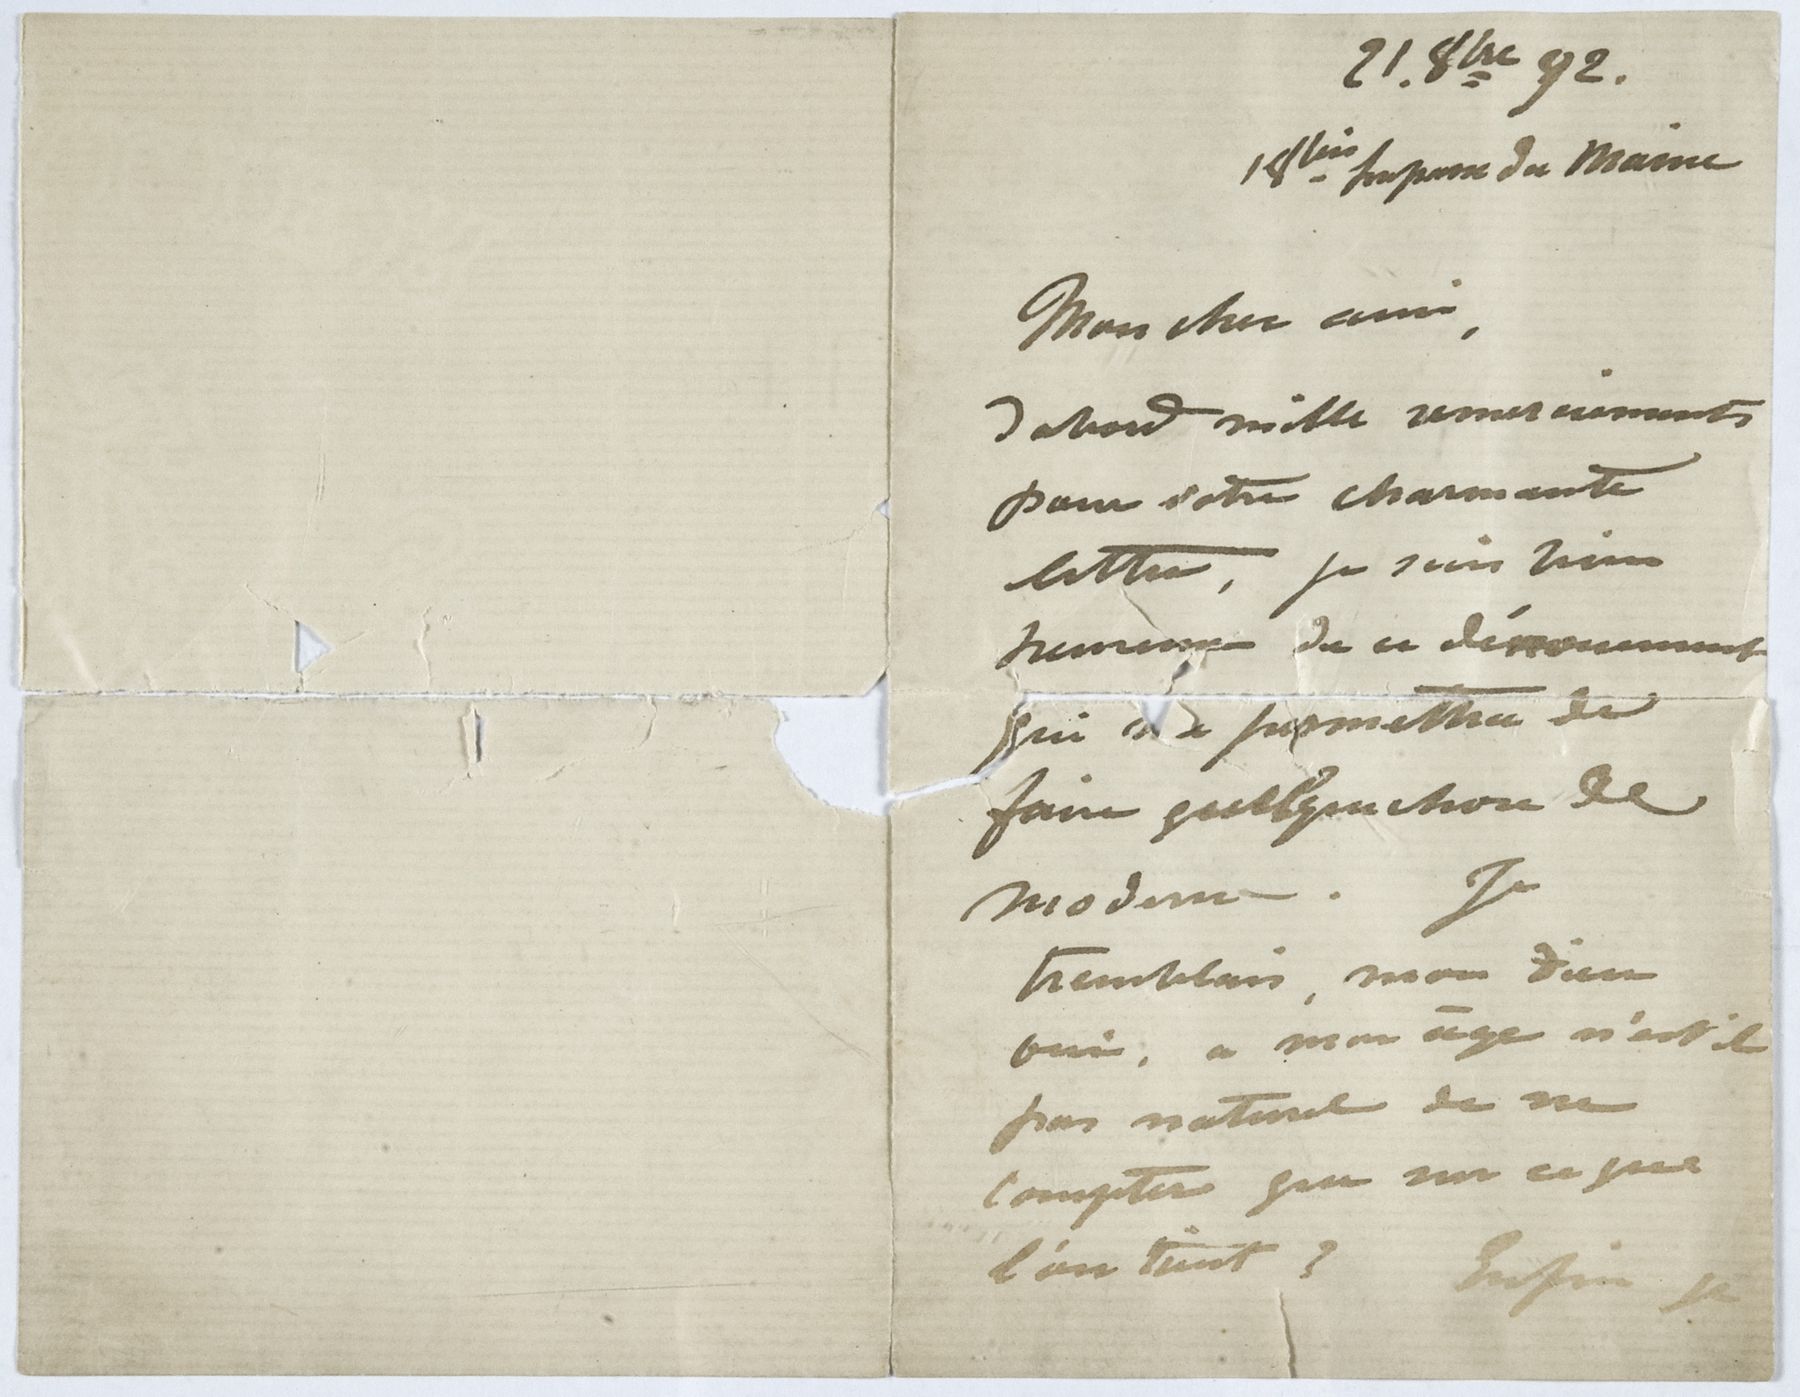 21. 8bre 92.
18bis Impasse du Maine
Mon cher ami,
d'abord mille remerciements
pour votre charmante
lettre, je suis bien
heureux de ce dénouement
qui va permettre de
faire quelque chose de
moderne. Je
tremblais, mon Dieu
oui, a mon âge n'est il
pas naturel de ne
compter que sur ce que
l'on tient ? Enfin je